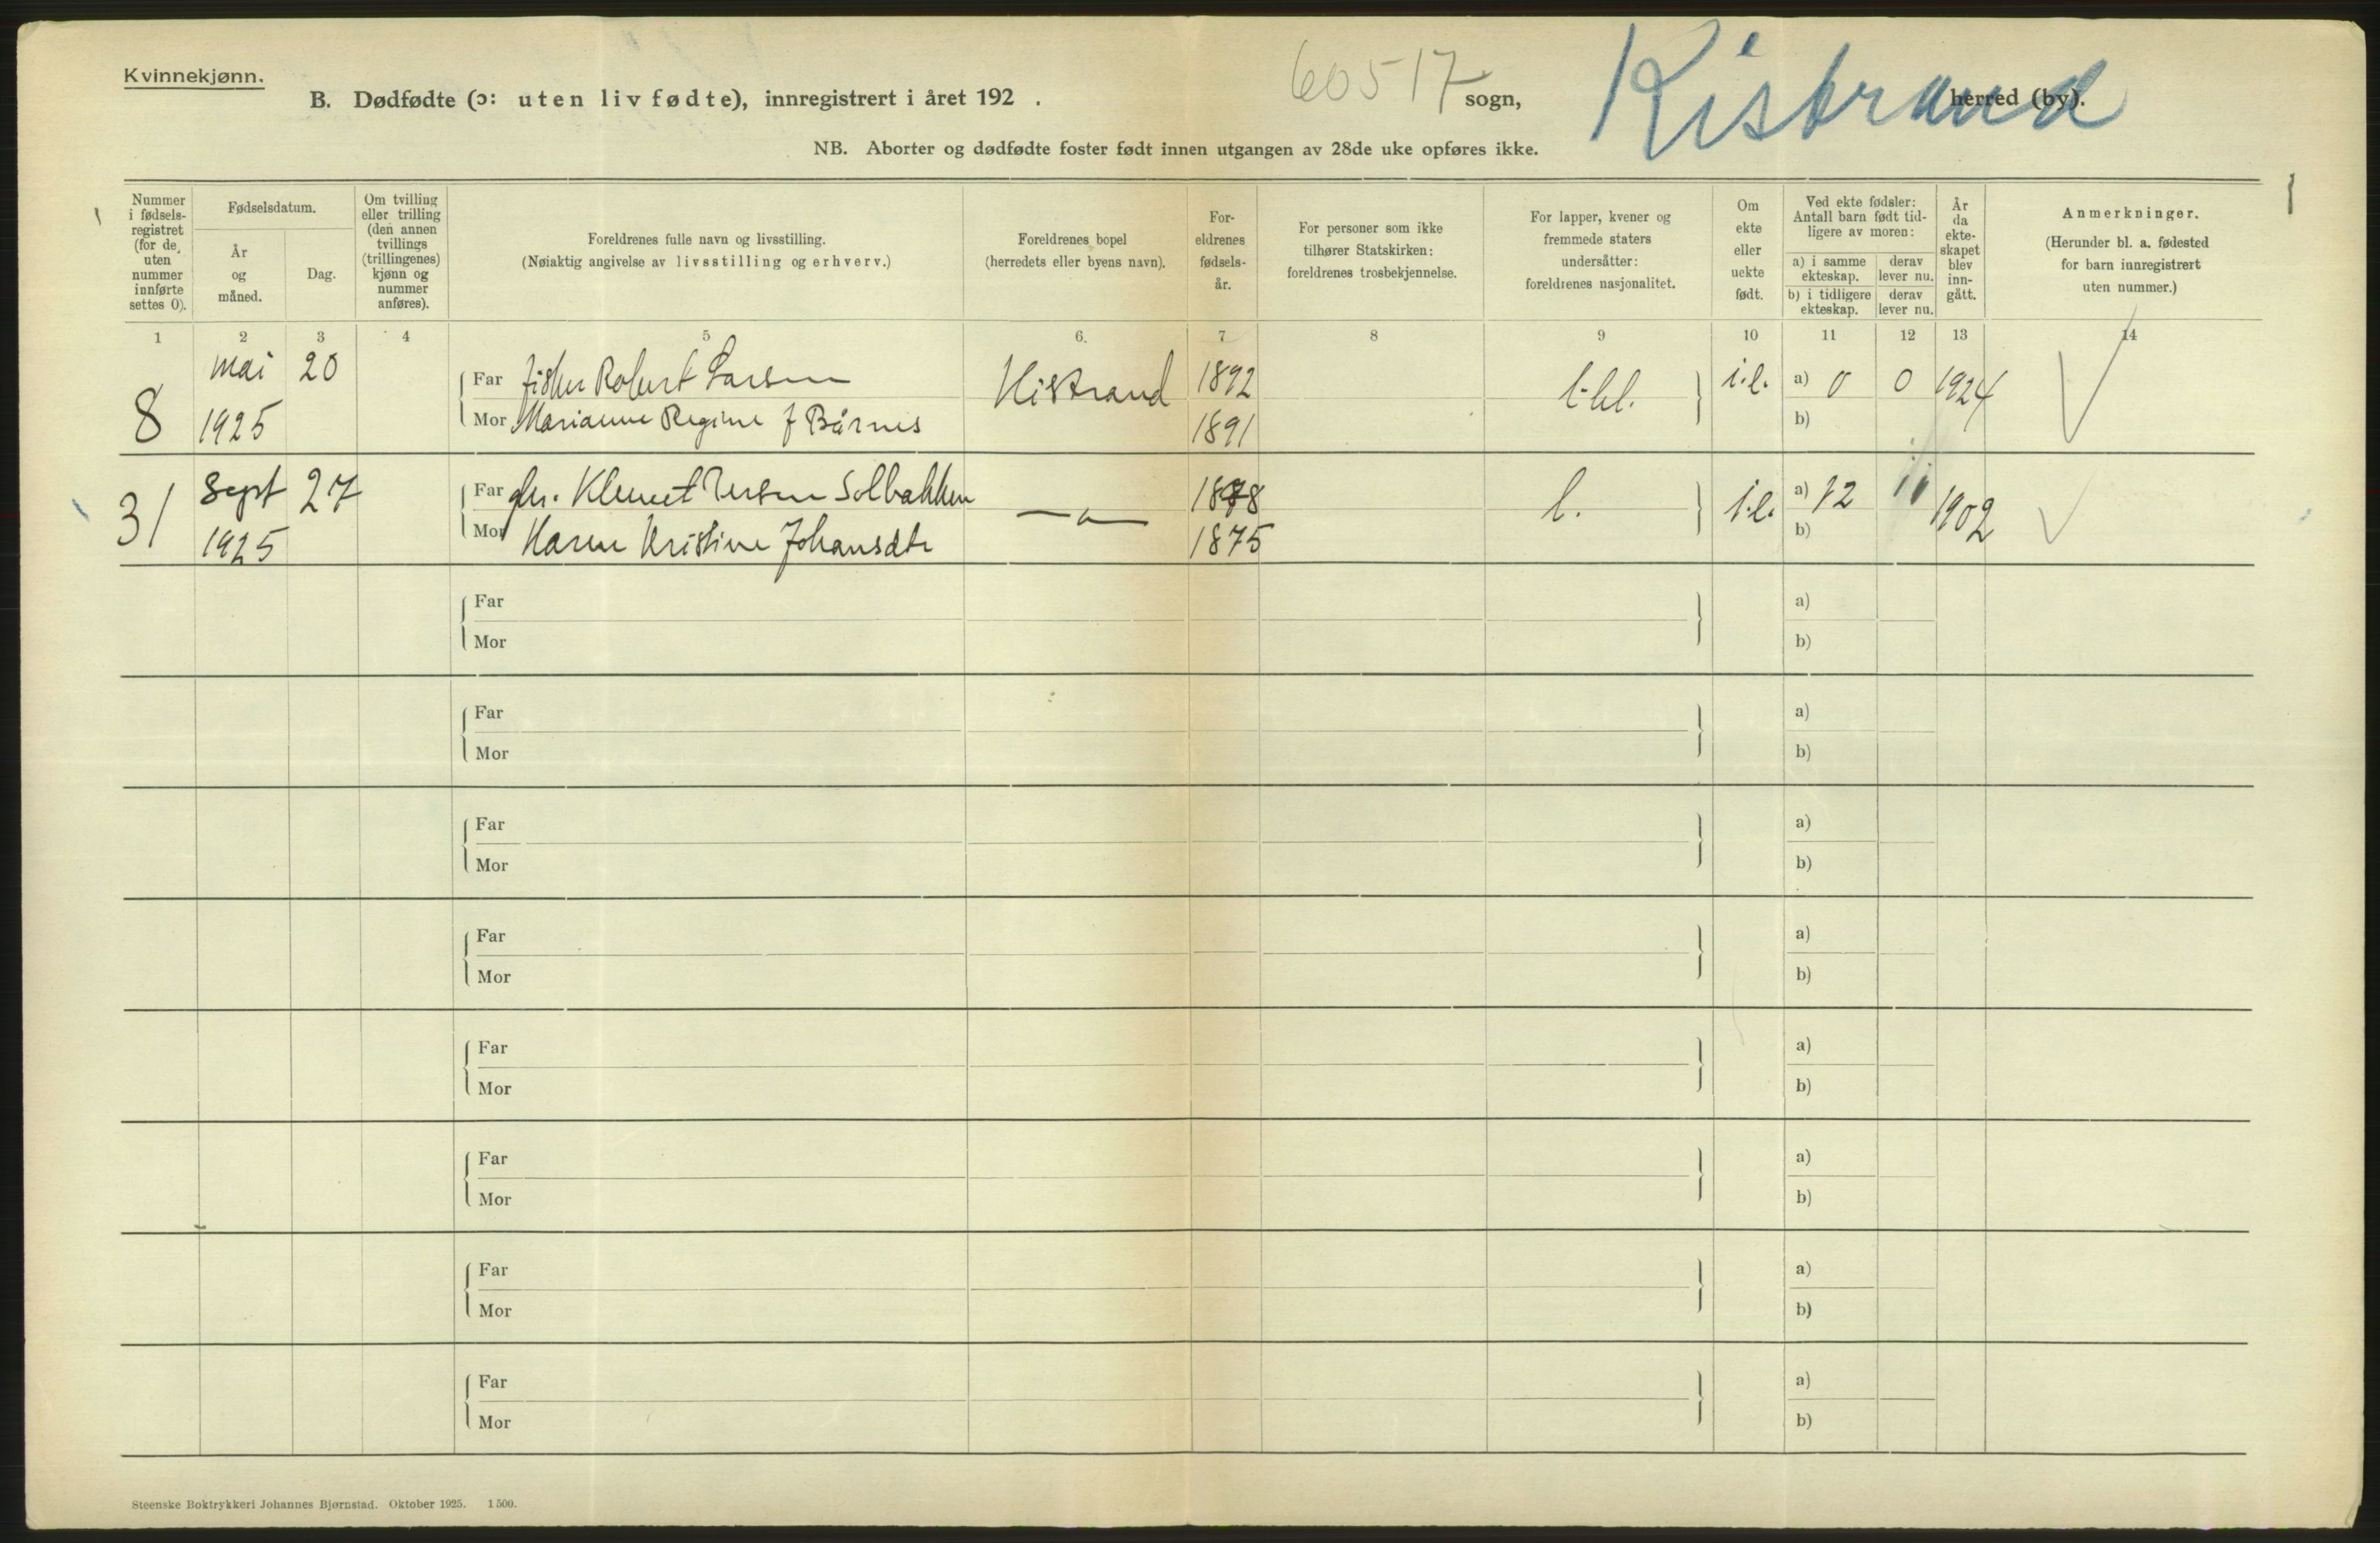 Kvinnekjønn.
B. Dødfødte (ɔ: uten liv fødte), innregistrert i året 192 .
60517 sogn,
Kistrand herred (by).
NB. Aborter og dødfødte foster født innen utgangen av 28de uke opføres ikke.
Nummer i fødsels-registret (for de uten nummer innførte settes 0).
Fødselsdatum.
År og måned.
Dag.
Om tvilling eller trilling (den annen tvillings (trillingenes) kjønn og nummer anføres).
Foreldrenes fulle navn og livsstilling.
(Nøiaktig angivelse av livsstilling og erhverv.)
Foreldrenes bopel (herredets eller byens navn).
For-eldrenes fødsels-år.
For personer som ikke tilhører Statskirken: foreldrenes trosbekjennelse.
For lapper, kvener og fremmede staters undersåtter: foreldrenes nasjonalitet.
Om ekte eller uekte født.
Ved ekte fødsler: Antall barn født tid-ligere av moren:
a) i samme ekteskap.
derav lever nu.
b) i tidligere ekteskap.
derav lever nu.
År da ekte-skapet blev inn-gått.
Anmerkninger.
(Herunder bl. a. fødested for barn innregistrert uten nummer.)
1 2 3 4 5 6. 7 8 9 10 11 12 13 14
8 mai 1925 20
Far fisker Robert Larsen Kistrand 1892 i.e. a) 0 0 1924
Mor Marianne Regine f Børnes 1891 b)
31 Sept 1925 27
Far Klemet Solbakken —"— 1878 l. i.e. a) 12 11 1902
Mor Karen Kristine Johansdtr 1875 b)
Far a)
Mor b)
Far a)
Mor b)
Far a)
Mor b)
Far a)
Mor b)
Far a)
Mor b)
Far a)
Mor b)
Far a)
Mor b)
Far a)
Mor b)
Steenske Boktrykkeri Johannes Bjørnstad. Oktober 1925. 1 500.